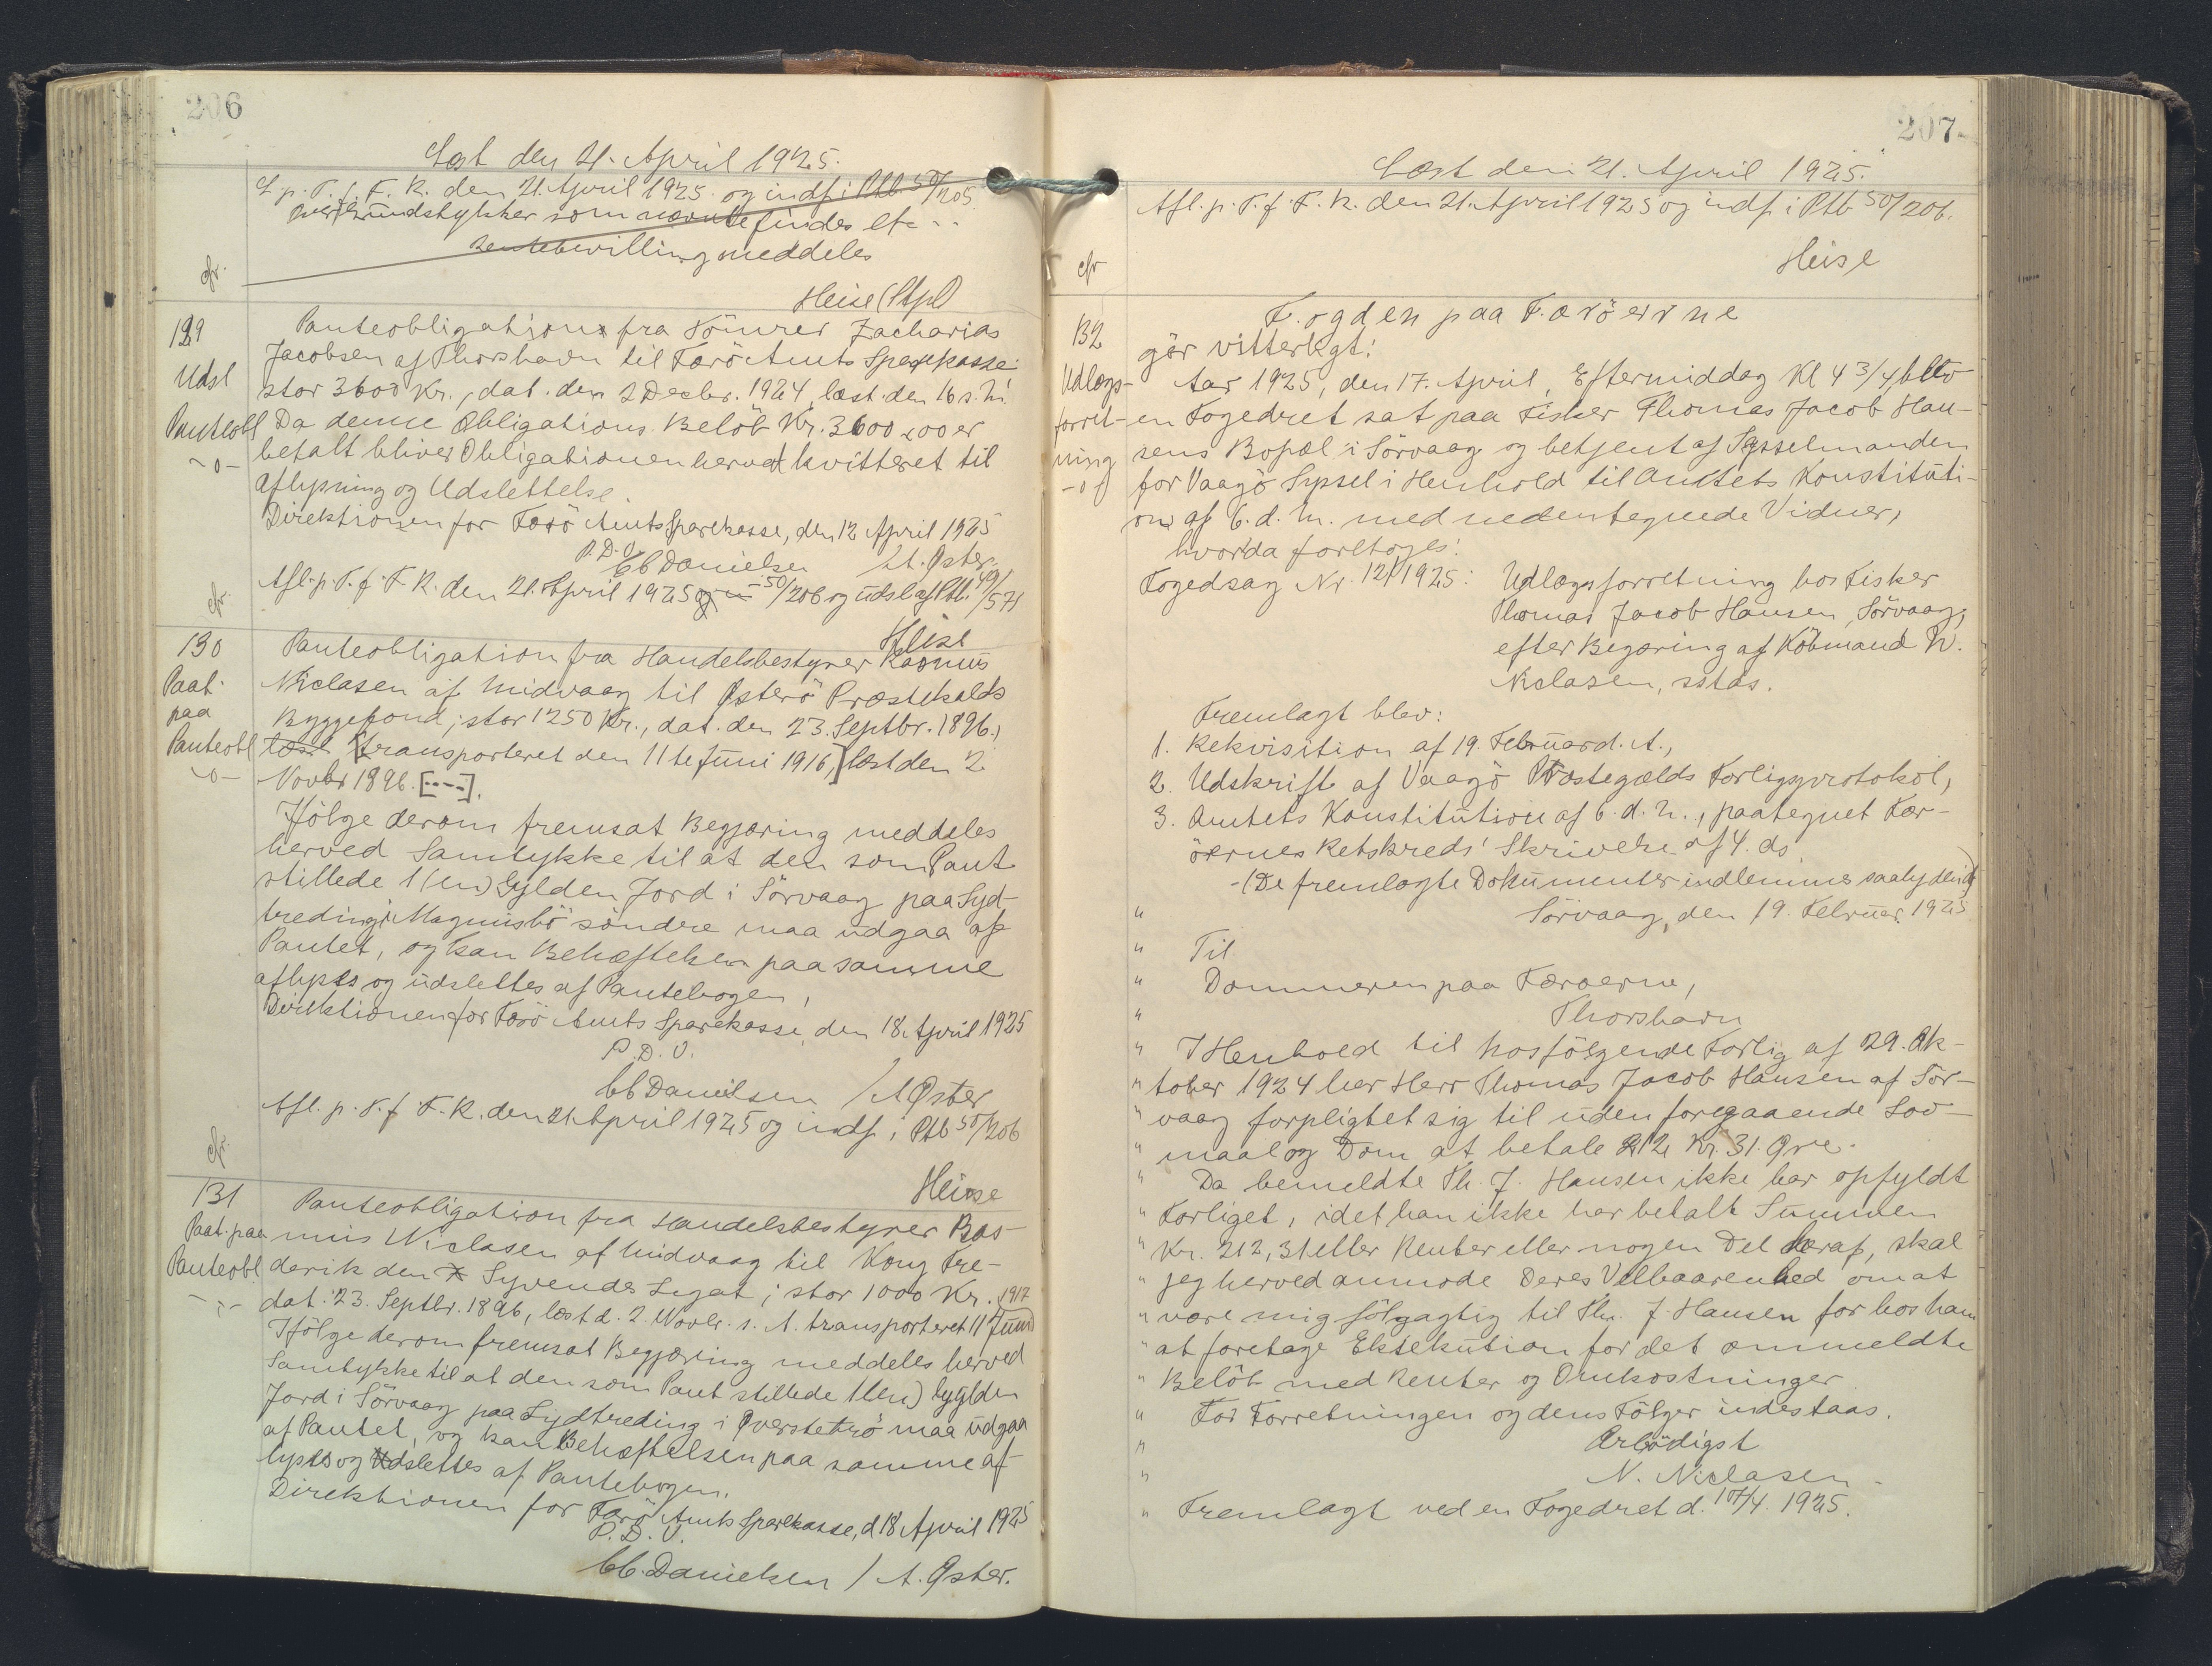 206
Læst den 21. April 1925.
L. p. T. f. F. R. den 21. April 1925 og indf. i Ptb. 50/205.
som nævnte findes
bevilling meddeles
cfr.
Heise
129
Udsl
Panteobl
-o-
Panteobligation fra Zacharias
Jacobsen af Thorshavn til Færö Amts Sparekasse
stor 3600 Kr., dat. den 2 Decbr. 1924, læst den 16 s. M.
Da denne Obligations Belöb Kr. 3600,00 er
betalt bliver Obligationen herved kvitteret til
Aflysning og Udslettelse.
Direktionen for Færö Amts Sparekasse, den 12 April 1925
P.D.V.
CC Danielsen / A. Øster.
Afl. p. T. f. F. R. den 21. April 1925 50/206 og udsl. af Ptb. 49/571
cfr.
Heise
130
Paat.
paa
Panteobl
-o-
Panteobligation fra Handelsbestyrer Rasmus
Niclasen af Midvaag til Österö Præstekalds
Byggefond, stor 1250 Kr., dat. den 23. Septbr. 1896,
læst [transporteret den 11te Juni 1916,] læst den 2
Novbr 1896. [----].
Ifölge derom fremsat Begjæring meddeles
herved Samtykke til at den som Pant
stillede 1 (en) Gylden Jord i Sörvaag paa Syd-
treding i Magnusbö söndre maa udgaa af
Pantet, og kan Behæftelsen paa samme
aflyses og udslettes af Pantebogen,
Direktionen for Færö Amts Sparekasse, den 18. April 1925
P.D.V.
CC Danielsen / A Øster
Afl. p. T. f. F. R. den 21 April 1925 og indf. i Ptb 50/206
cfr.
Heise
131
Paat. paa
Panteobl
Panteobligation fra Handelsbestyrer Ras-
mus Niclasen af Midvaag til Kong Fre-
derik den Syvendes Legat, stor 1000 Kr. 1917
dat. 23. Septbr. 1896, læst d. 2. Novbr. s. A. transporteret 11 Juni
Ifölge derom fremsat Begjæring meddeles herved
Samtykke til at den som Pant stillede 1 (en) Gylden
Jord i Sörvaag paa Sydtreding i maa udgaa
af Pantet, og kan Behæftelsen paa samme af-
lyses og Udslettes af Pantebogen.
Direktionen for Færö Amts Sparekasse, d 18 April 1925
P.D.V.
CC. Danielsen / A. Øster.
207.
Læst den 21. April 1925.
Afl. p. T. f. F. R. den 21. April 1925 og indf. i Ptb 50/206.
cfr
Heise
132
Udlægs-
forret-
ning
-o-
Fogden paa Færöerne
gör vitterligt:
Aar 1925, den 17. April, Eftermiddag Kl 4 3/4 blev
en Fogedret sat paa Fisker Thomas Jacob Han-
sens Bopæl i Sörvaag og betjent af Sysselmanden
for Vaagö Syssel i Henhold til Amtets Konstituti-
on af 6. d. M. med nedentegnede Vidner,
hvorda foretoges:
Fogedsag Nr. 12/1925: Udlægsforretning hos Fisker
Thomas Jacob Hansen, Sörvaag,
efter Begæring af Köbmand N.
Niclasen, sstds.
Fremlagt blev:
1. Rekvisition af 19. Februar d. A.,
2. Udskrift af Vaagö Præstegælds Forligsprotokol,
3. Amtets Konstitution af 6. d. M., paategnet Fær-
öernes Retskreds' Skrivelse af 4. ds
-(De fremlagte Dokumenter indlemmes saalydende)
" Sörvaag, den 19. Februar 1925
" Til
" Dommeren paa Færøerne,
" Thorshavn
" I Henhold til hosfölgende Forlig af 29. Ok-
" tober 1924 har Herr Thomas Jacob Hansen af Sör-
" vaag forpligtet sig til uden foregaaende Lov-
" maal og Dom at betale 212 Kr. 31 Øre.
" Da bemeldte Th. J. Hansen ikke har opfyldt
" Forliget, idet han ikke har betalt Summen
" Kr. 212,31 eller Renter eller nogen Del deraf, skal
" jeg herved anmode Deres Velbaarenhed om at
" være mig fölgagtig til Th. J. Hansen for hos ham
" at foretage Eksekution for det ommeldte
" Belöb med Renter og Omkostninger.
" For Forretningen og dens Fölger indestaas.
" Ærbödigst
" N. Niclasen
" Fremlagt ved en Fogedret d. 17/4. 1925.